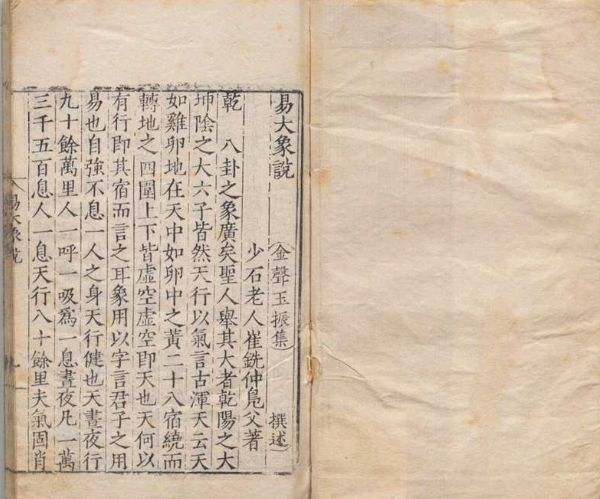 易大象說
金聲玉振集
撰述
少石老人崔銑仲鳧父著
乾 八卦之象廣矣聖人舉其大者乾陽之大
坤陰之大六子皆然天行以氣言古渾天云天
如雞卵地在天中如卵中之黃二十八宿繞而
轉地之四圍上下皆虛空虛空即天也天何以
有行即其宿而言之耳象用以字言君子之用
易也自強不息一人之身天行健也天晝夜行
九十餘萬里人一呼一吸爲一息晝夜凡一萬
三千五百息人一息天行八十餘里夫氣固肖
易大象說